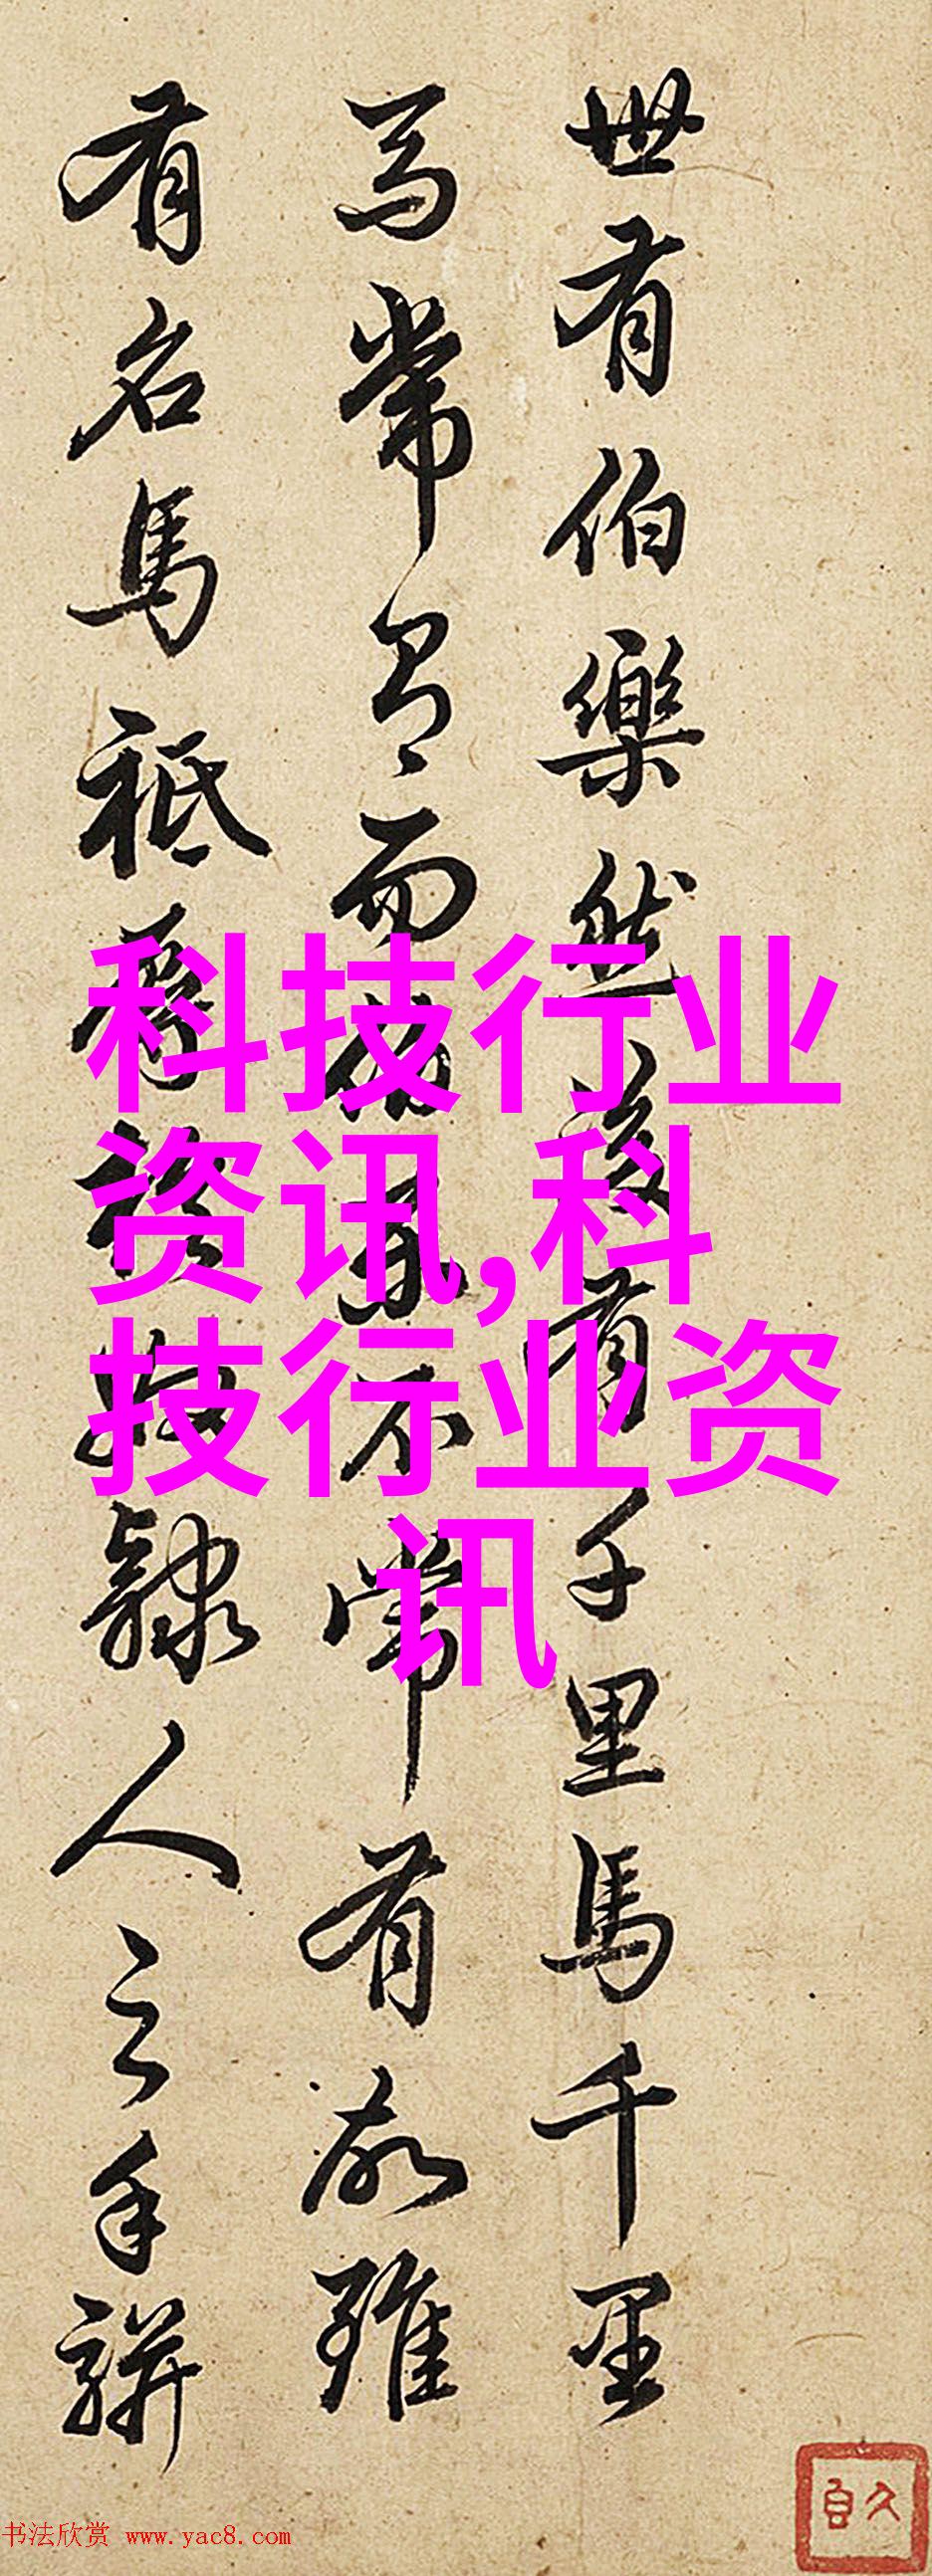 世有伯樂然後有千里馬千里
馬常有而伯樂不常有故雖
有名馬祗辱於奴隸人之手駢
科技行业
资讯,科
技行业资
讯
书法欣赏 www.yac8.com